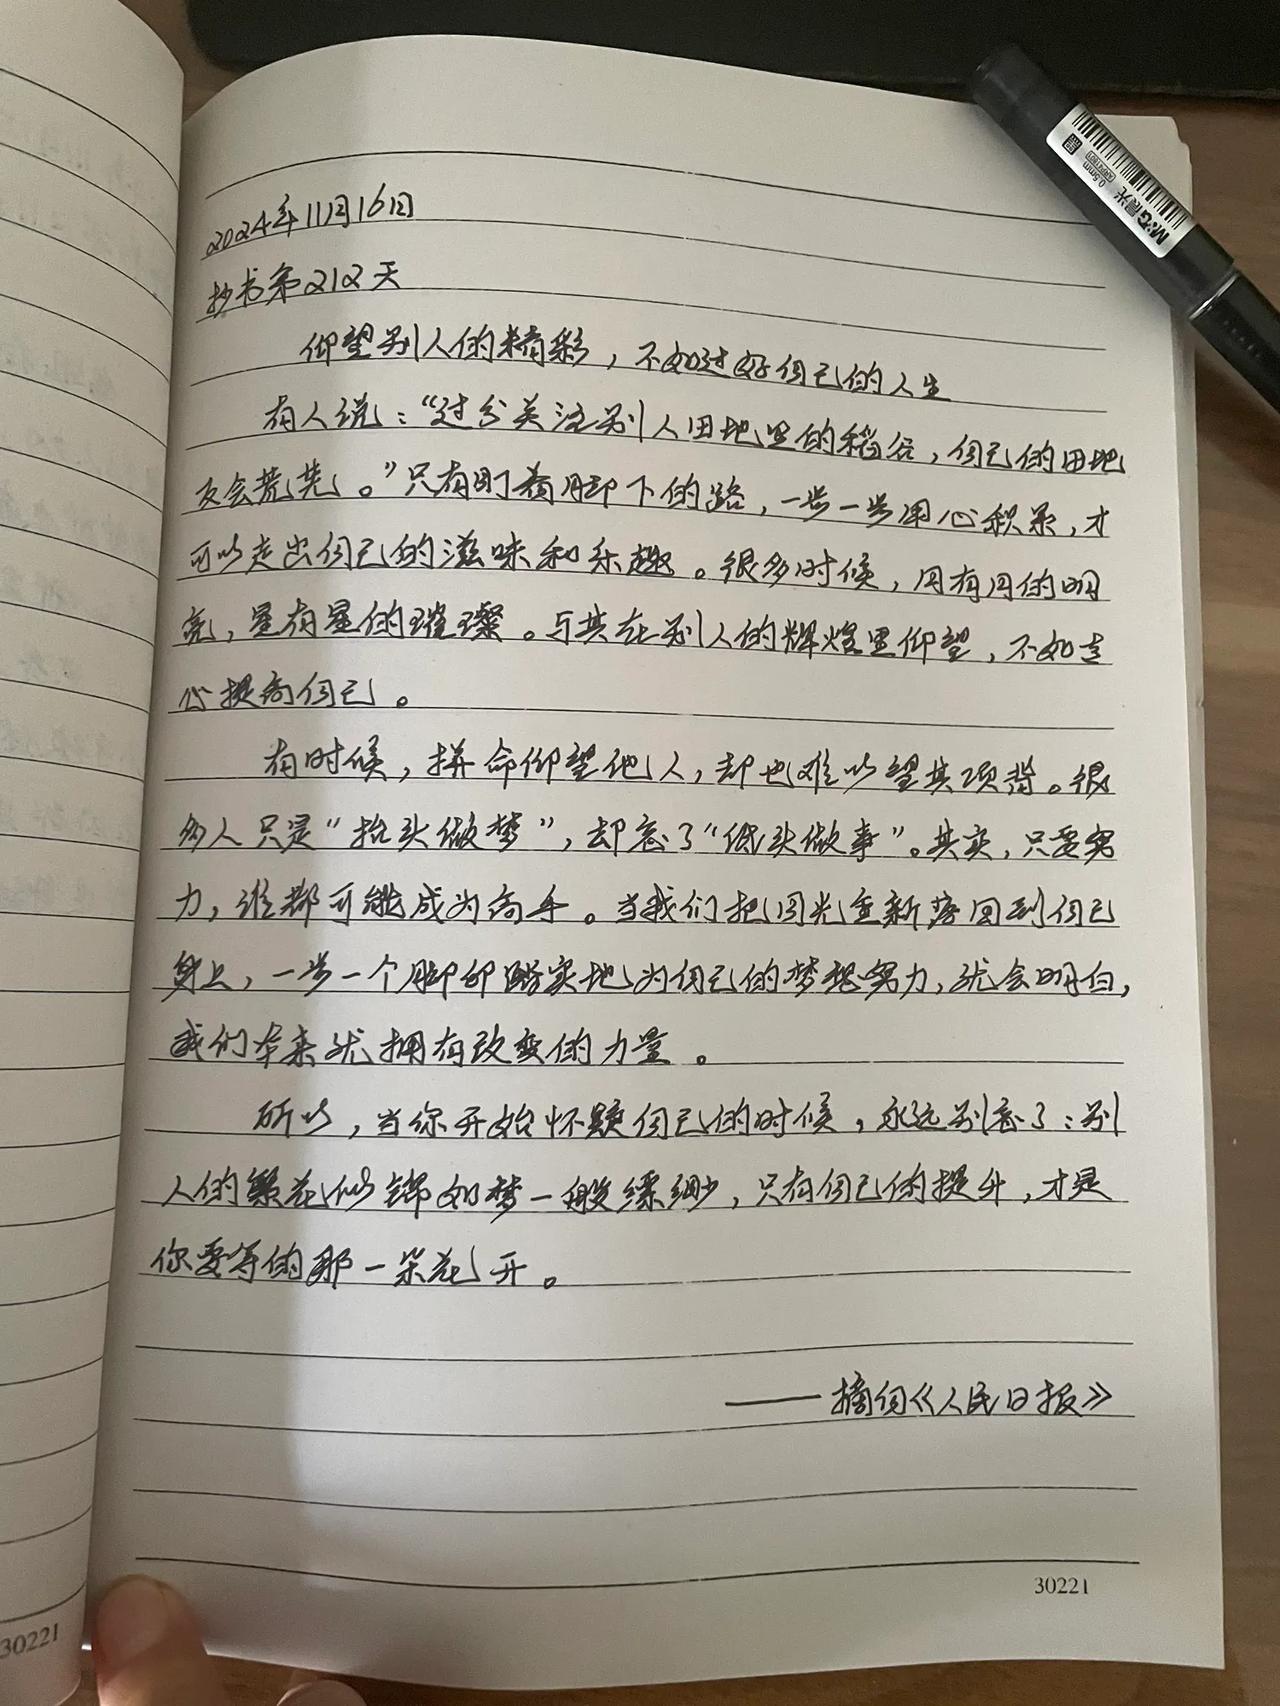 2024年11月16日
抄书第212天
仰望别人的精彩，不如过好自己的人生
有人说：“过分关注别人田地里的稻谷，自己的田地
反会荒芜。”只有盯着脚下的路，一步一步用心积累，才
可以走出自己的滋味和乐趣。很多时候，月有月的明
亮，星有星的璀璨。与其在别人的辉煌里仰望，不如专
心提高自己。
有时候，拼命仰望他人，却也难以望其项背。很
多人只是“抬头做梦”，却忘了“低头做事”。其实，只要努
力，谁都可能成为高手。当我们把目光重新落回到自己
身上，一步一个脚印踏实地为自己的梦想努力，就会明白，
我们本来就拥有改变的力量。
所以，当你开始怀疑自己的时候，永远别忘了：别
人的繁花似锦如梦一般缥缈，只有自己的提升，才是
你要等的那一朵花开。
——摘自《人民日报》
30221
30221
M&G晨光
0.5mm